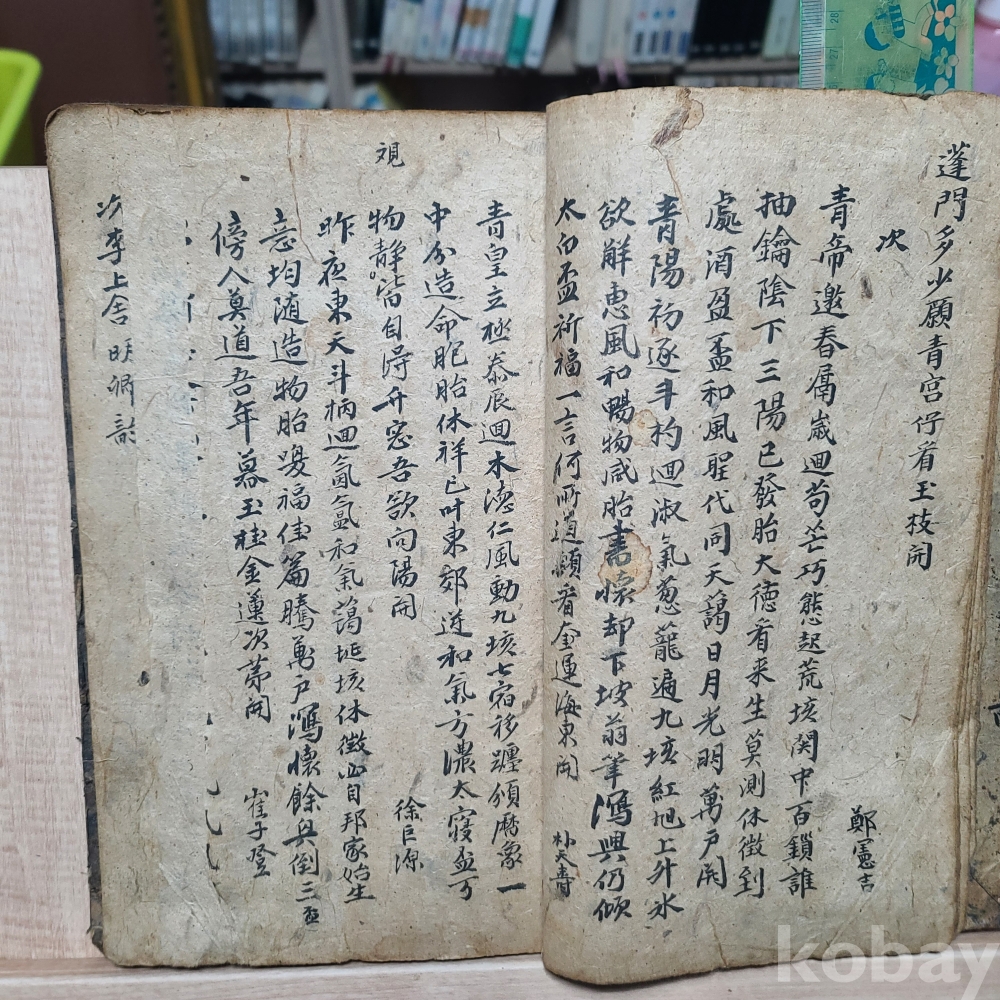 蓬門多少願青宮佇看玉枝開
次
青帝邀春屬歲迴苟芒巧態起荒垓関中百鎖誰
抽鑰陰下三陽已發胎大德看来生莫測休徵到
處酒盈盃和風聖代同天藹日月光明萬戶開
鄭憲吉
青陽初逐斗杓迴淑氣葱蘢遍九垓紅旭上升氷
欲解惠風和暢物咸胎書懷却下坡翁筆瀉興仍傾
太白盃祈福一言何所道願看奎運海東開
朴天青
覌
青皇立極泰辰迴木德仁風動九垓七宿移躔頒曆象一
中分造命胞胎休祥已叶東郊迓和氣方濃太寢盃可
物靜皆自得升窓吾欲向陽開
徐巨源
昨夜東天斗柄迴氤氳和氣藹埏垓休徵皆自邦家始生
意均随造物胎嘏福佳篇騰萬戶瀉懷餘興倒三盃
傍人莫道吾年暮玉桂金蓮次苐開
崔子登
次李上舍明卿韻
kobay